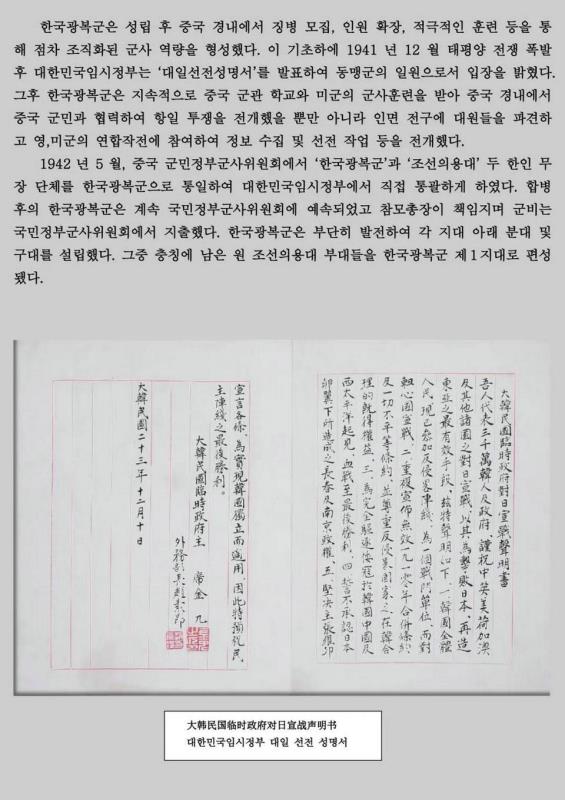 한국광복군은 성립 후 중국 경내에서 징병 모집, 인원 확장, 적극적인 훈련 등을 통
해 점차 조직화된 군사 역량을 형성했다. 이 기초하에 1941 년 12 월 태평양 전쟁 폭발
후 대한민국임시정부는 ‘대일선전성명서’를 발표하여 동맹군의 일원으로서 입장을 밝혔다.
그후 한국광복군은 지속적으로 중국 군관 학교와 미군의 군사훈련을 받아 중국 경내에서
중국 군민과 협력하여 항일 투쟁을 전개했을 뿐만 아니라 인면 전구에 대원들을 파견하
고 영,미군의 연합작전에 참여하여 정보 수집 및 선전 작업 등을 전개했다.
1942 년 5 월, 중국 군민정부군사위원회에서 ‘한국광복군’과 ‘조선의용대’ 두 한인 무
장 단체를 한국광복군으로 통일하여 대한민국임시정부에서 직접 통괄하게 하였다. 합병
후의 한국광복군은 계속 국민정부군사위원회에 예속되었고 참모총장이 책임지며 군비는
국민정부군사위원회에서 지출했다. 한국광복군은 부단히 발전하여 각 지대 아래 분대 및
구대를 설립했다. 그중 충칭에 남은 원 조선의용대 부대들을 한국광복군 제1지대로 편성
됐다.
大韓民國臨時政府對日宣戰聲明書
吾人代表三千萬韓人及政府、謹祝中英美荷加澳
及其他諸國之對日宣戰、以其為擊敗日本、再造
東亞之最有效手段、茲特聲明如下、一、韓國全體
人民、現已參加反侵略陣綫、為一個戰鬥單位、而對
軸心國宣戰、二、重複宣佈無效一九一〇年合併條約
及一切不平等條約、並尊重反侵略國家之在韓合
理的既得權益、三、為完全驅逐倭寇於韓國中國及
西太平洋起見、血戰至最後勝利、四、誓不承認日本
卵翼下所造成之長春及南京政權、五、堅決主張羅邱
宣言各條、為實現韓國獨立而適用、因此特預祝民
主陣綫之最後勝利。
大韓民國臨時政府主 席金 九
外務部長趙素昂
大韓民國二十三年十二月十日
大韩民国临时政府对日宣战声明书
대한민국임시정부 대일 선전 성명서